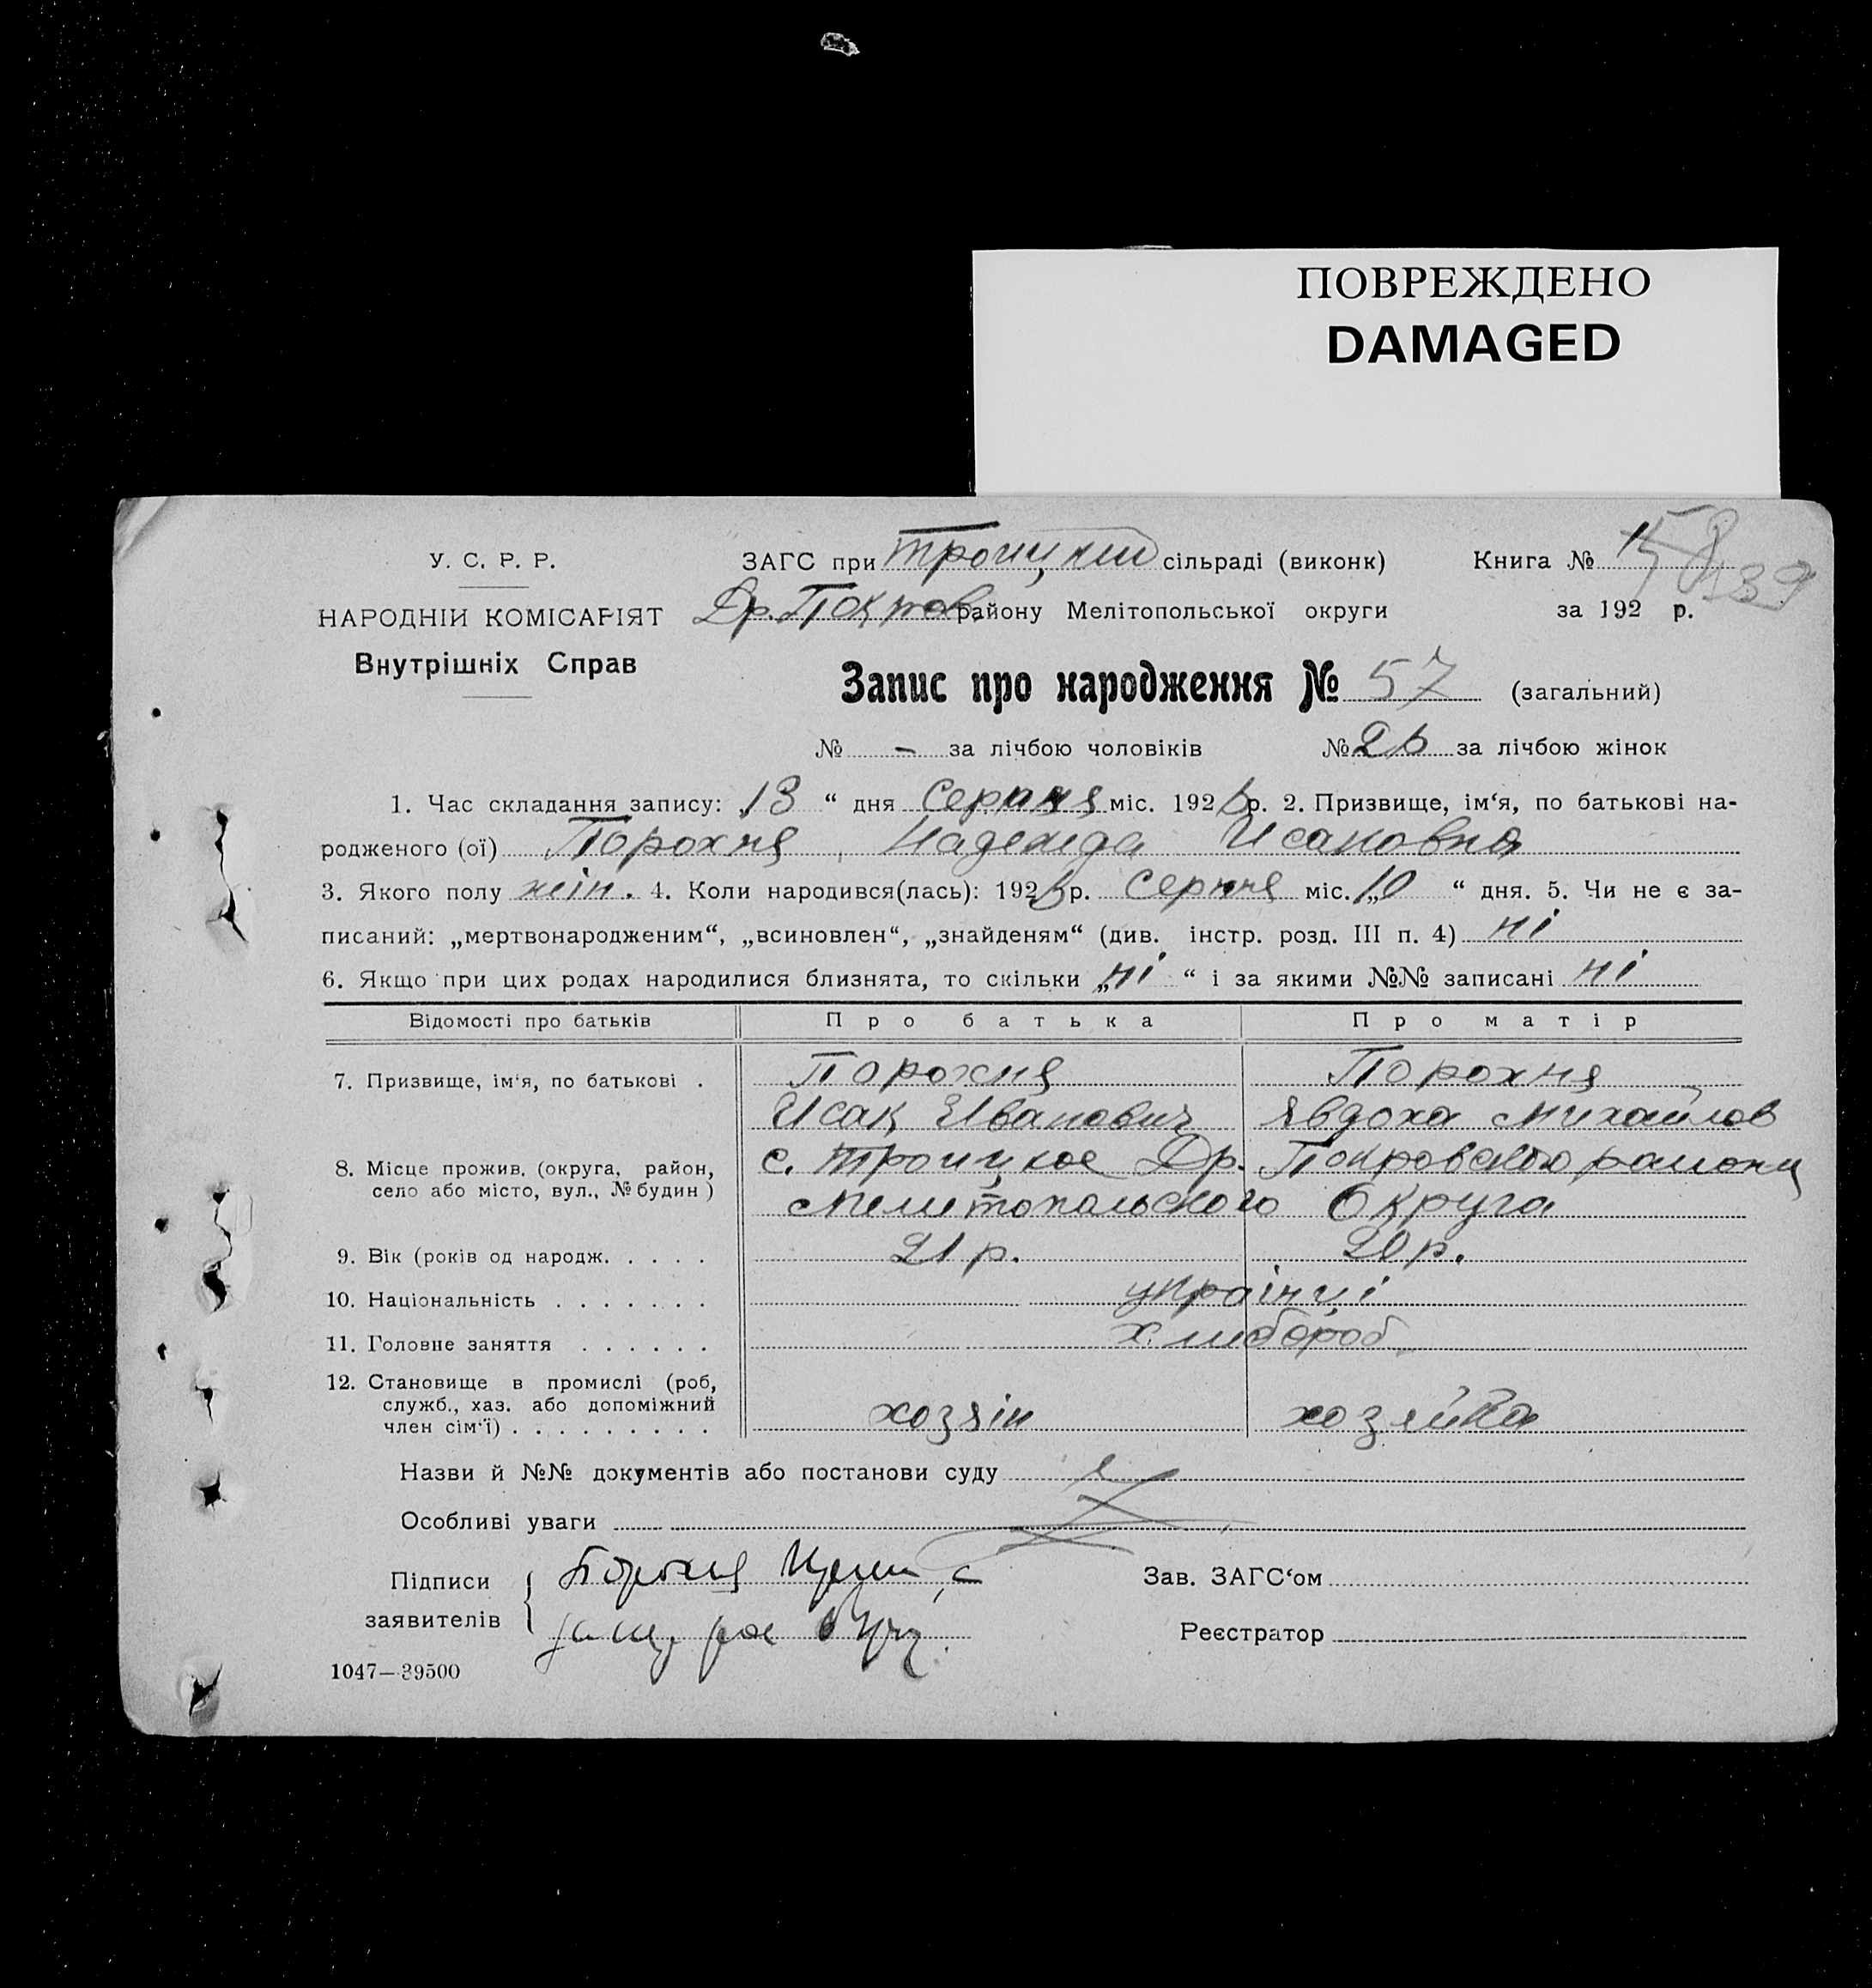 ПОВРЕЖДЕНО
DAMAGED
У. С. Р. Р.
НАРОДНІЙ КОМІСАРІЯТ
Внутрішніх Справ
ЗАГС при Троицкій сільраді (виконк)
Др. Покров. району Мелітопольської округи
Книга №
за 192 р.
Запис про народження № 57 (загальний)
№ - за лічбою чоловіків № 26 за лічбою жінок
1. Час складання запису: 13 “ дня Серпня міс. 1926 р. 2. Призвище, ім‘я, по батькові на-
родженого (ої) Порохня, Надежда Исаковна
3. Якого полу жін. 4. Коли народився(лась): 1926 р. Серпня міс. „10 “ дня. 5. Чи не є за-
писаний: „мертвонародженим“, „всиновлен“, „знайденям“ (див. інстр. розд. III п. 4) ні
6. Якщо при цих родах народилися близнята, то скільки „ні “ і за якими №№ записані ні
Відомості про батьків Про батька Про матір
7. Призвище, ім‘я, по батькові . Порохня Порохня
Исак Иванович Явдоха Михайлов
8. Місце прожив. (округа, район, с. Троицкое Др. Покровского району
село або місто, вул., № будин) Мелитопольского Округа
9. Вік (років од народж. . . . . 21 р. 20 р.
10. Національність . . . . . . . українці
11. Головне заняття . . . . . . хлибороб
12. Становище в промислі (роб,
служб., хаз. або допоміжний хозяін хозяйка
член сім‘ї) . . . . . . . . .
Назви й №№ документів або постанови суду
Особливі уваги
Підписи
заявителів { Порохня
Зав. ЗАГС‘ом
Реєстратор
1047—39500